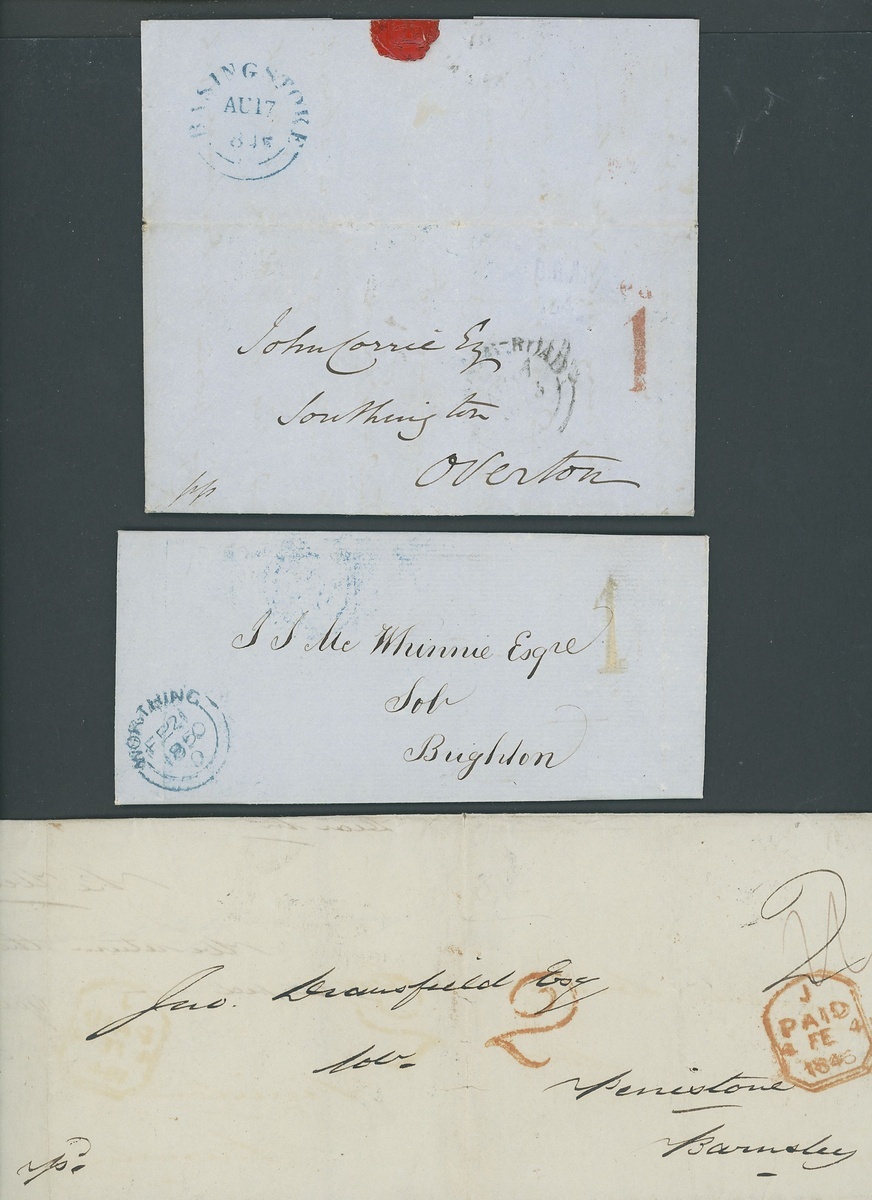 BASINGSTOKE
AU 17
John Corrie Esq
Southington
Overton
pp
1
J J Mc Whinnie Esqre
Sol
Brighton
1
WORTHING
1850
Jno. Dransfield Esq
Sol.
Penistone
Barnsley
2
2
J
PAID
4 FE 4
1846